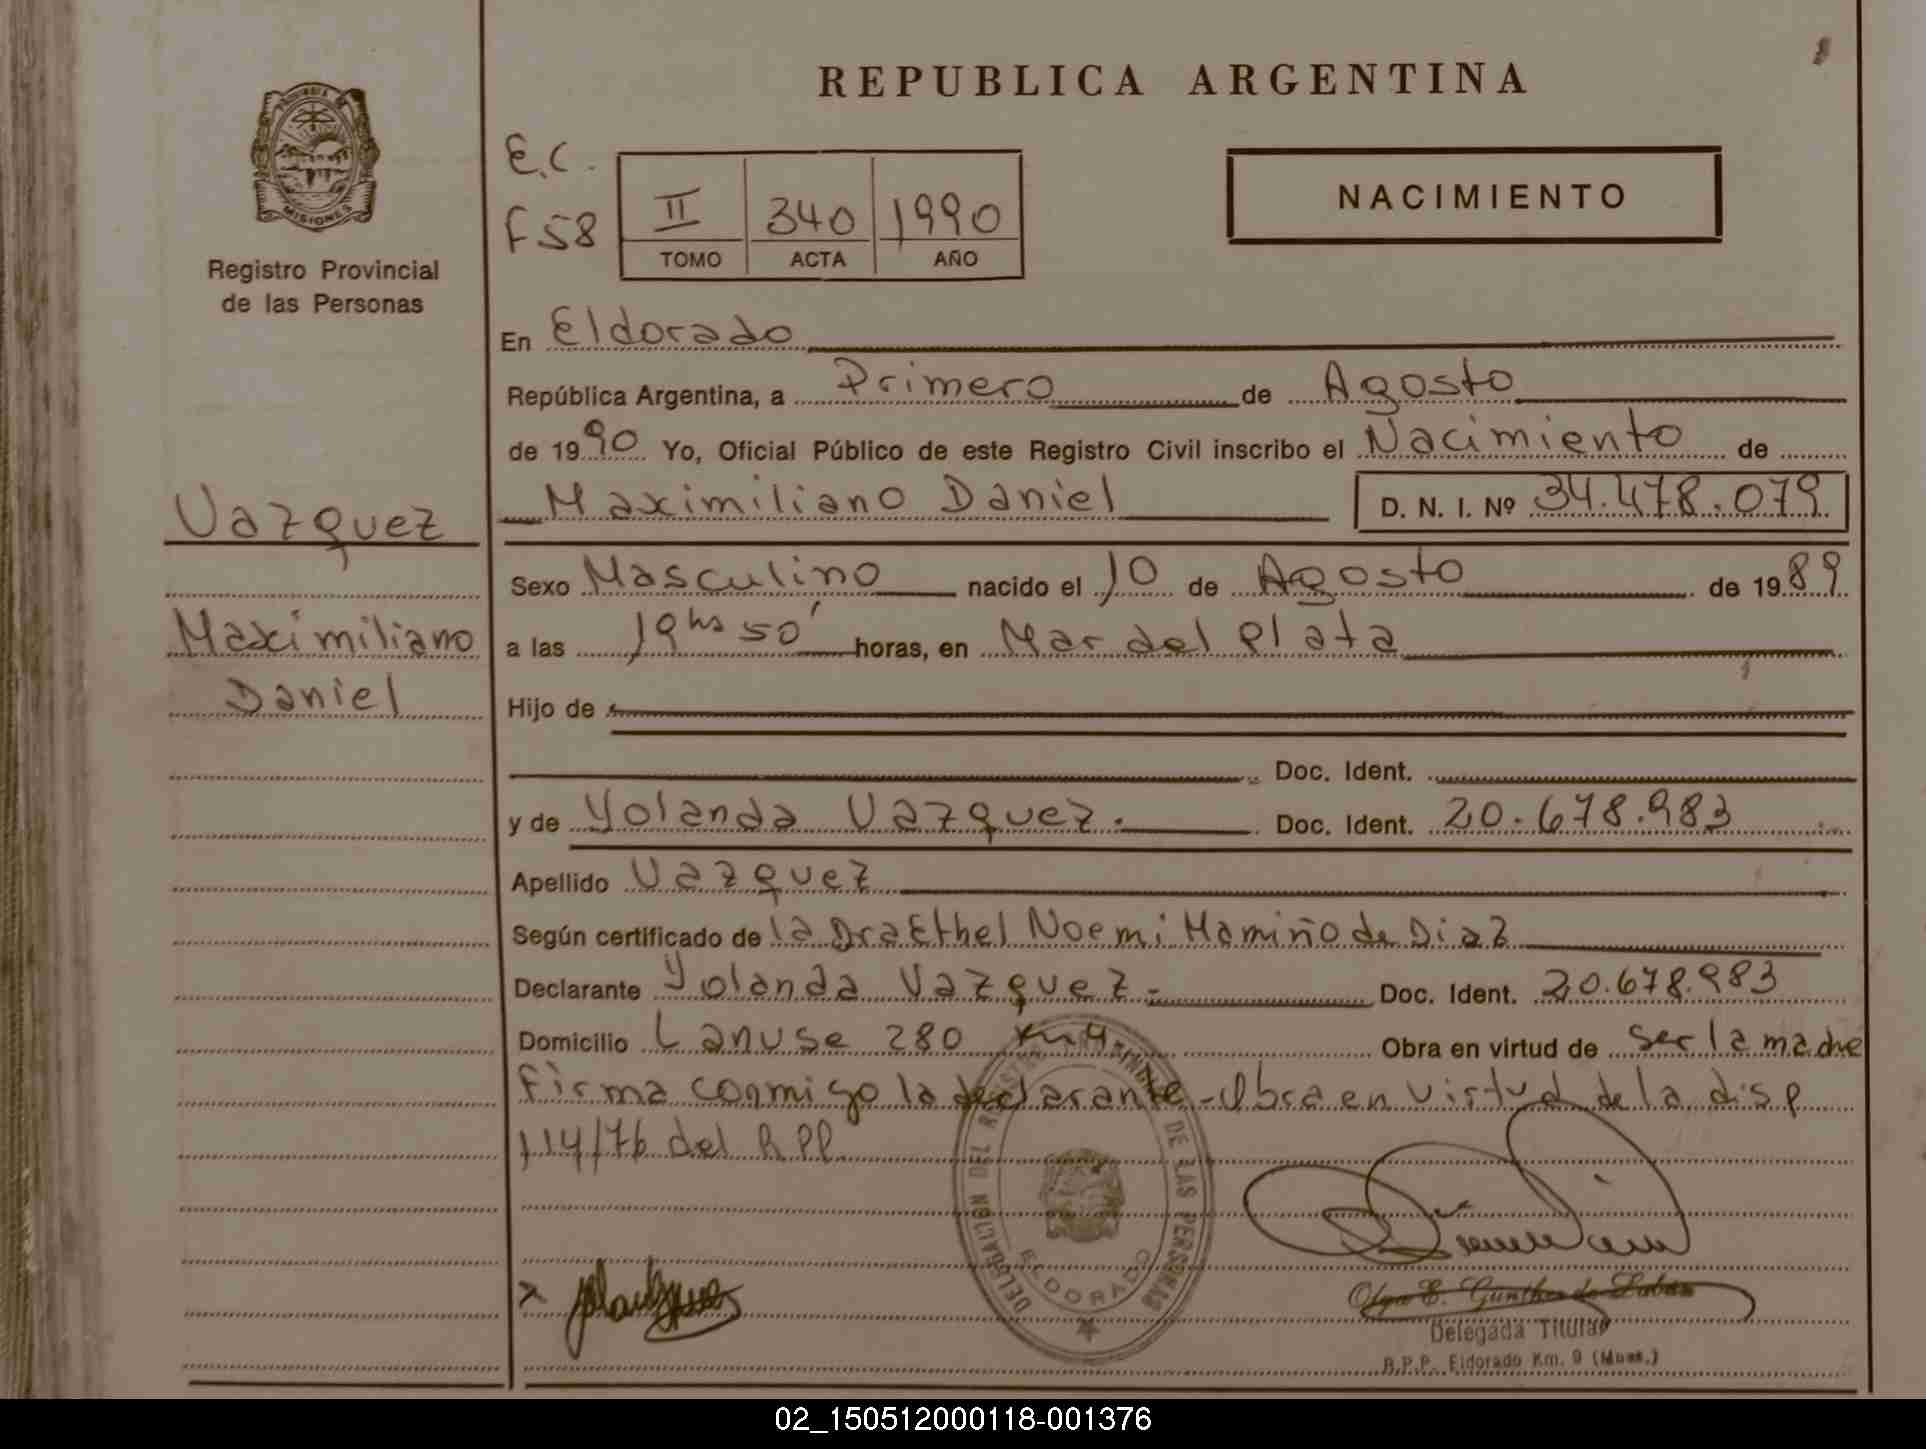 REPUBLICA ARGENTINA
PROVINCIA DE
MISIONES
Registro Provincial
de las Personas
E.C.
F 58
II 340 1990
TOMO ACTA AÑO
NACIMIENTO
En Eldorado
República Argentina, a Primero de Agosto
de 1990 Yo, Oficial Público de este Registro Civil inscribo el Nacimiento de
Maximiliano Daniel D. N. I. Nº 34.478.079
Vazquez
Maximiliano
Daniel
Sexo Masculino nacido el 10 de Agosto de 1989
a las 19 hs 50' horas, en Mar del Plata
Hijo de
Doc. Ident.
y de Yolanda Vazquez. Doc. Ident. 20.678.983
Apellido Vazquez
Según certificado de la Dra Ethel Noemi Mamiño de Diaz
Declarante Yolanda Vazquez - Doc. Ident. 20.678.983
Domicilio Lanuse 280 Obra en virtud de ser la madre
Firma conmigo la declarante - Obra en virtud de la disp
114/76 del RPP.
DELEGACION DEL REGISTRO DE LAS PERSONAS
ELDORADO
x
Olga E. Gunther de Luban
Delegada Titular
R.P.P. Eldorado Km. 9 (Mnes.)
02_150512000118-001376